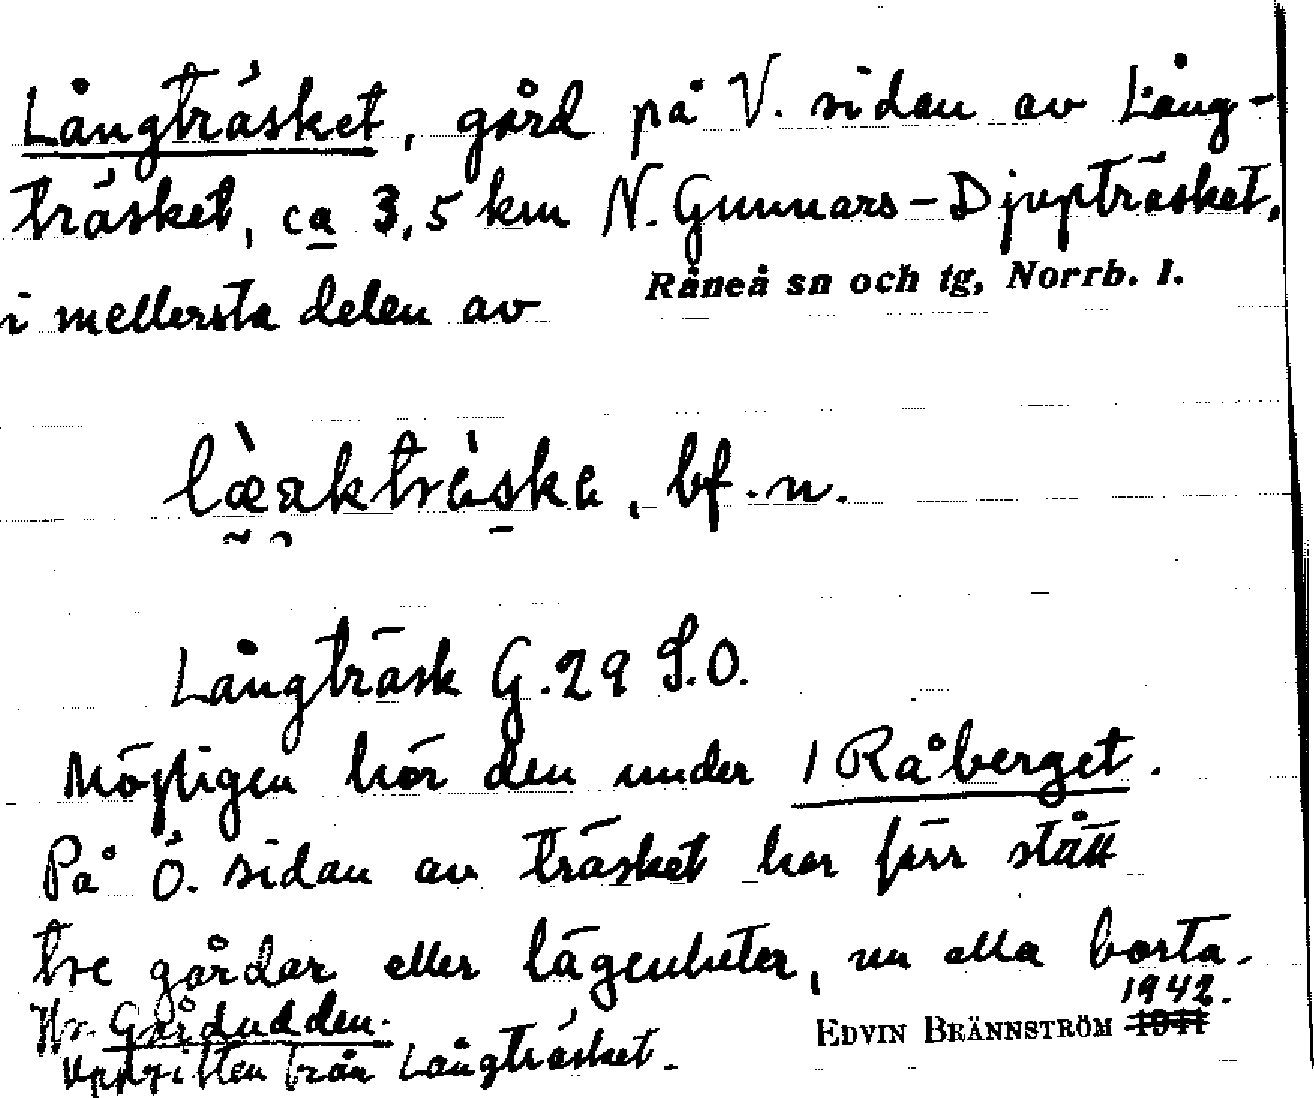 Långträsket, gård på V. sidan av Lång-
träsket, ca 3,5 km N. Gunnars-Djupträsket,
i mellersta delen av Råneå sn och tg, Norrb. l.
bf. n.
Långträsk G. 29 S.O.
Möjligen hör den under 1 Råberget.
På Ö. sidan av träsket har förr stått
tre gårdar eller lägenheter, nu alla borta.
1942.
Hr. Gårdudden. EDVIN BRÄNNSTRÖM 1941
Uppgiften från Långträsket.